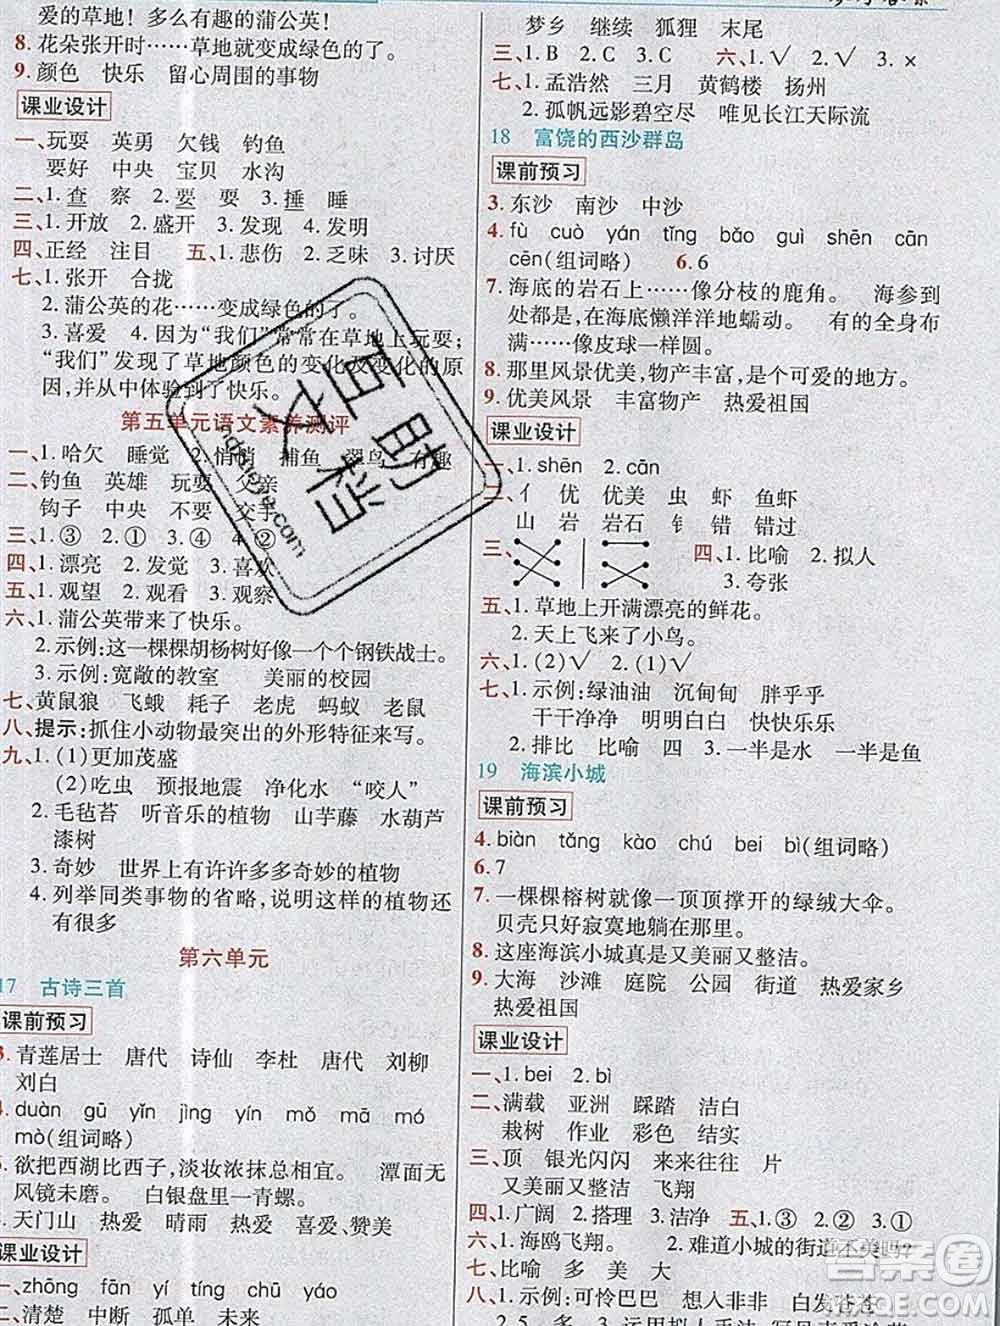 爱的草地！多么有趣的蒲公英！
8. 花朵张开时……草地就变成绿色的了。
9. 颜色 快乐 留心周围的事物
课业设计
一、玩耍 英勇 欠钱 钓鱼
要好 中央 宝贝 水沟
二、1. 查 察 2. 要 耍 3. 捶 睡
三、1. 开放 2. 盛开 3. 发现 4. 发明
四、正经 注目 五、1. 悲伤 2. 乏味 3. 讨厌
七、1. 张开 合拢
2. 蒲公英的花……变成绿色的了。
3. 喜爱 4. 因为“我们”常常在草地上玩耍；
“我们”发现了草地颜色的变化及变化的原
因，并从中体验到了快乐。
第五单元语文素养测评
一、1. 哈欠 睡觉 2. 悄悄 捕鱼 翠鸟 有趣
二、钓鱼 英雄 玩耍 父亲
钩子 中央 不要 交手
三、1. ③ 2. ① 3. ④ 4. ②
四、1. 漂亮 2. 发觉 3. 喜欢
五、1. 观望 2. 观看 3. 观察
六、1. 蒲公英带来了快乐。
2. 示例：这一棵棵胡杨树好像一个个钢铁战士。
3. 示例：宽敞的教室 美丽的校园
七、黄鼠狼 飞蛾 耗子 老虎 蚂蚁 老鼠
八、提示：抓住小动物最突出的外形特征来写。
九、1. (1)更加茂盛
(2)吃虫 预报地震 净化水 “咬人”
2. 毛毡苔 听音乐的植物 山芋藤 水葫芦
漆树
3. 奇妙 世界上有许许多多奇妙的植物
4. 列举同类事物的省略，说明这样的植物还
有很多
第六单元
17 古诗三首
课前预习
3. 青莲居士 唐代 诗仙 李杜 唐代 刘柳
刘白
4. duàn gū yǐn jìng yín mǒ mā mó
mò(组词略)
欲把西湖比西子，淡妆浓抹总相宜。 潭面无
风镜未磨。 白银盘里一青螺。
天门山 热爱 晴雨 热爱 喜爱、赞美
课业设计
一、zhōng fān yí tíng chū yáo
二、清楚 中断 孤单 未来
梦乡 继续 狐狸 末尾
三、1. B 2. C 3. C 六、1. √ 2. √ 3. ×
七、1. 孟浩然 三月 黄鹤楼 扬州
2. 孤帆远影碧空尽 唯见长江天际流
18 富饶的西沙群岛
课前预习
3. 东沙 南沙 中沙
4. fù cuò yán tǐng bǎo guì shēn cān
cēn(组词略) 6. 6
7. 海底的岩石上……像分枝的鹿角。 海参到
处都是，在海底懒洋洋地蠕动。 有的全身布
满……像皮球一样圆。
8. 那里风景优美，物产丰富，是个可爱的地方。
9. 优美风景 丰富物产 热爱祖国
课业设计
一、1. shēn 2. cān
二、亻 优 优美 虫 虾 鱼虾
山 岩 岩石 钅 错 错过
三、 四、1. 比喻 2. 拟人
3. 夸张
五、1. 草地上开满漂亮的鲜花。
2. 天上飞来了小鸟。
六、1. (2)√ 2. (1)√
七、1. 示例：绿油油 沉甸甸 胖乎乎
干干净净 明明白白 快快乐乐
2. 排比 比喻 四 3. 一半是水 一半是鱼
19 海滨小城
课前预习
4. biàn tǎng kào chú bei bì(组词略)
6. 7
7. 一棵棵榕树就像一顶顶撑开的绿绒大伞。
贝壳只好寂寞地躺在那里。
8. 这座海滨小城真是又美丽又整洁。
9. 大海 沙滩 庭院 公园 街道 热爱家乡
热爱祖国
课业设计
一、1. bei 2. bì
二、满载 亚洲 踩踏 洁白
栽树 作业 彩色 结实
三、顶 银光闪闪 来来往往 片
又美丽又整洁 飞翔
四、1. 广阔 2. 搭理 3. 洁净 五、1. ③ 2. ② 3. ①
六、1. 海鸥飞翔。 2. 难道小城的街道不美吗？
七、比喻 多 美 大
八、1. 示例：可怜巴巴 想入非非 白发苍苍